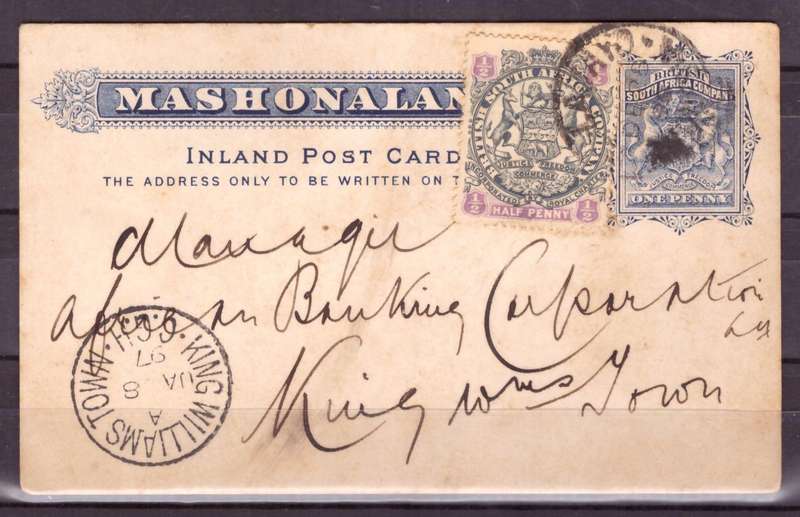 MASHONALAN
INLAND POST CARD
THE ADDRESS ONLY TO BE WRITTEN ON T
½ ½
BRITISH SOUTH AFRICA COMPANY
JUSTICE FREEDOM
COMMERCE
INCORPORATED BY ROYAL CHARTER
½ HALF PENNY ½
BRITISH
SOUTH AFRICA COMPANY
JUSTICE FREEDOM
COMMERCE
ONE PENNY
Manager
African Banking Corporation
Ld
King Wms Town
KING WILLIAMS TOWN · C.G.H.
A
8
JA
97